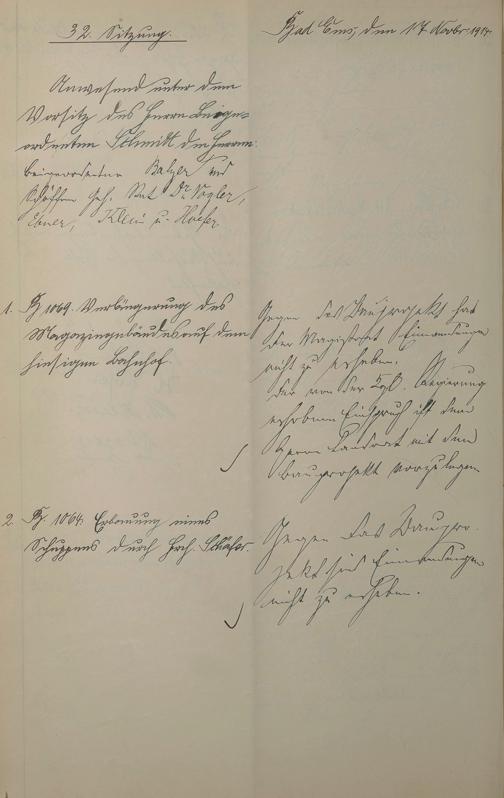 32. Sitzung.
Bad Ems, den 17 Novbr. 1914.
Anwesend unter dem
Vorsitz des Herrn Beige-
ordneten Schmidt die Herren
Beigeordneten Balzer und
Schöffen Geh. Rat Dr. Vogler,
Ebner, Klein u. Hoefer
1. B 1069. Verlängerung des
Magazingebäudes auf dem
hiesigen Bahnhof.
Gegen das Bauprojekt hat
der Magistrat Einwendungen
nicht zu erheben.
Der von der Kgl. Regierung
erhobene Einspruch ist dem
Herrn Landrat mit dem
Bauprojekt vorzulegen
2. B. 1064. Erbauung eines
Schuppens durch Hch. Schäfer.
Gegen das Baupro-
jekt sind Einwendungen
nicht zu erheben.